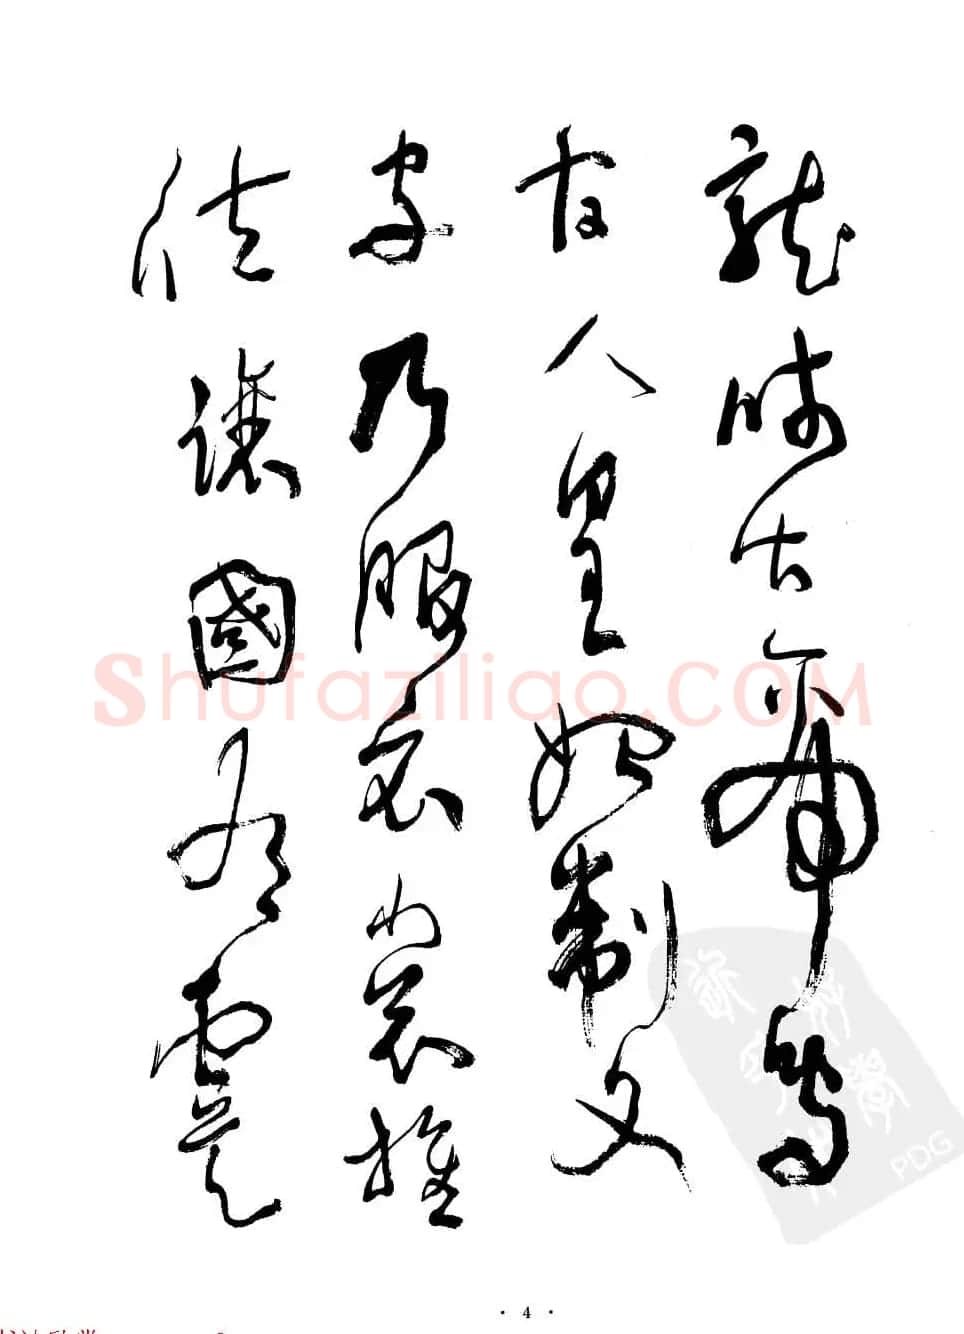 龍師火帝鳥
官人皇始制文
字乃服衣裳推
位讓國有虞
Shufaziliao.COM
PDG
· 4 ·